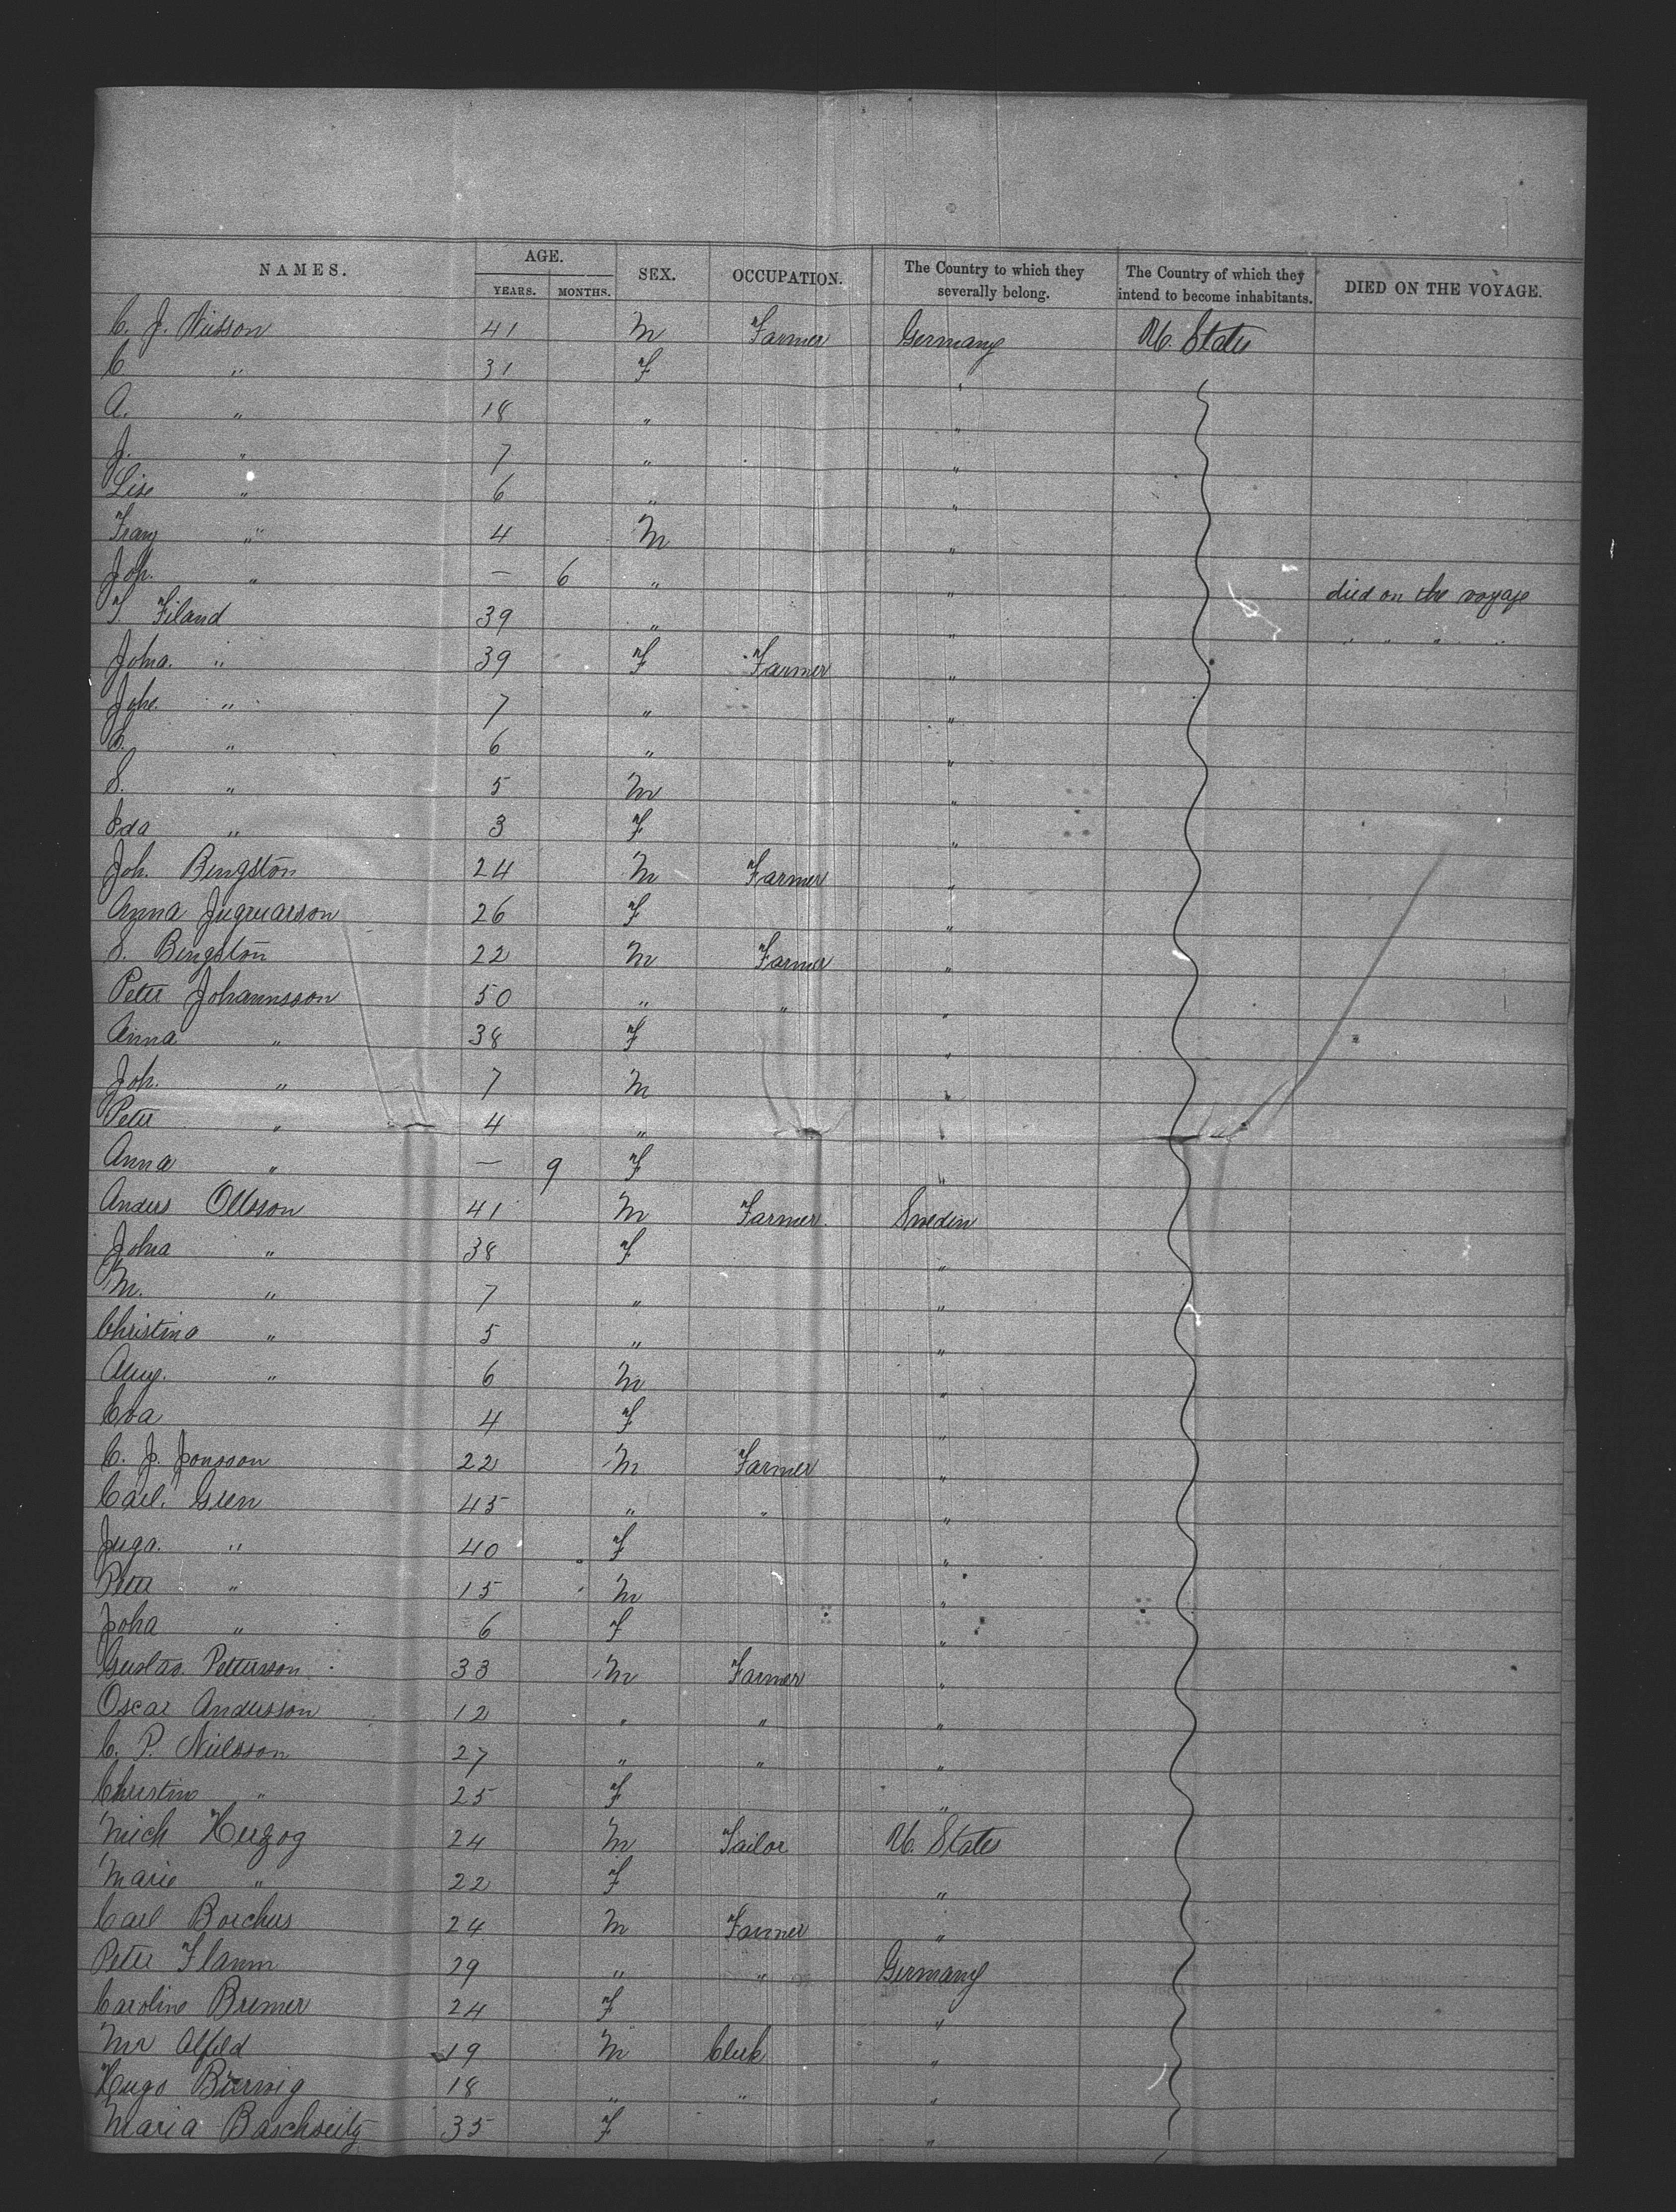 NAMES. AGE. YEARS. MONTHS. SEX. OCCUPATION. The Country to which they severally belong. The Country of which they intend to become inhabitants. DIED ON THE VOYAGE.
C. J. Nilsson 41 M Farmer Germany U. States
C " 31 F "
A. " 18 " "
J. " 7 " "
Lise " 6 " "
Franz " 4 M "
Joh. " — 6 " " died on the voyage
T. Filand 39 " " " " " "
Joha. " 39 F Farmer "
Johe. " 7 " "
C. " 6 " "
S. " 5 M "
Ida " 3 F "
Joh. Bengston 24 M Farmer "
Anna Ingmarson 26 F "
S. Bengston 22 M Farmer "
Peter Johannsson 50 " " "
Anna " 38 F "
Joh. " 7 M "
Peter " 4 " "
Anna " — 9 F "
Anders Ollsson 41 M Farmer Sweden
Joha " 38 F "
M. " 7 " "
Christina " 5 " "
Aug. " 6 M "
Eva 4 F "
C. J. Jonsson 22 M Farmer "
Carl. Gren 45 " " "
Inga. " 40 F "
Peter " 15 M "
Joha " 6 F "
Gustav. Petterson 33 M Farmer "
Oscar Andersson 12 " " "
C. P. Nielsson 27 " " "
Christine " 25 F "
Mich Herzog 24 M Tailor U. States
Marie " 22 F "
Carl Borchers 24 M Farmer "
Peter Flamm 29 " " Germany
Caroline Bremer 24 F "
Mr Alfeld 19 M Clerk "
Hugo 18 " " "
Maria Baschseitz 35 F "